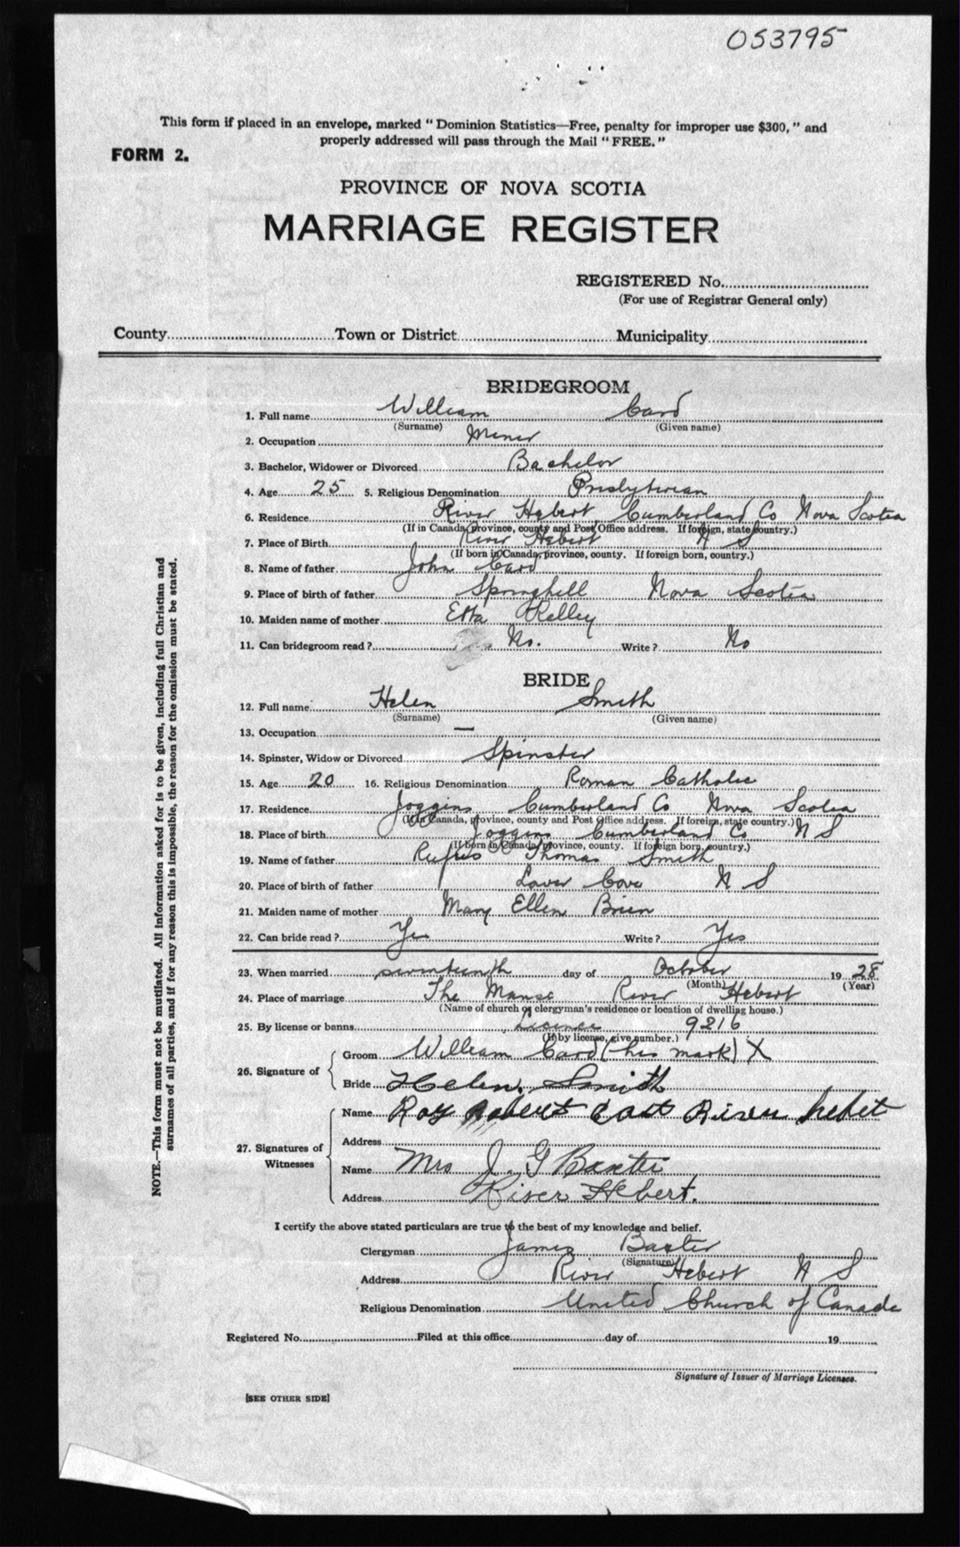 053795
This form if placed in an envelope, marked " Dominion Statistics—Free, penalty for improper use $300, " and
properly addressed will pass through the Mail " FREE. "
FORM 2.
PROVINCE OF NOVA SCOTIA
MARRIAGE REGISTER
REGISTERED No.
(For use of Registrar General only)
County Town or District Municipality
BRIDEGROOM
1. Full name William Card
(Surname) (Given name)
2. Occupation Miner
3. Bachelor, Widower or Divorced Bachelor
4. Age 25 5. Religious Denomination Presbyterian
6. Residence River Hebert Cumberland Co Nova Scotia
(If in Canada, province, county and Post Office address. If foreign, state country.)
7. Place of Birth River Hebert N S
(If born in Canada, province, county. If foreign born, country.)
8. Name of father John Card
9. Place of birth of father Springhill Nova Scotia
10. Maiden name of mother Etta Kelley
11. Can bridegroom read ? No. Write ? No
BRIDE
12. Full name Helen Smith
(Surname) (Given name)
13. Occupation —
14. Spinster, Widow or Divorced Spinster
15. Age 20 16. Religious Denomination Roman Catholic
17. Residence Joggins Cumberland Co Nova Scotia
(If in Canada, province, county and Post Office address. If foreign, state country.)
18. Place of birth Joggins Cumberland Co N S
(If born in Canada, province, county. If foreign born, country.)
19. Name of father Rufus Thomas Smith
20. Place of birth of father Lower Cove N S
21. Maiden name of mother Mary Ellen Brien
22. Can bride read ? Yes Write ? Yes
23. When married seventeenth day of October 19 28
(Month) (Year)
24. Place of marriage The Manse River Hebert
(Name of church or clergyman's residence or location of dwelling house.)
25. By license or banns License 9216
(If by license, give number.)
26. Signature of
Groom William Card (his mark) X
Bride Helen. Smith
27. Signatures of Witnesses
Name Roy Robert East River hebet
Address
Name Mrs J. G Baxter
Address River Hebert.
I certify the above stated particulars are true to the best of my knowledge and belief.
Clergyman James Baxter
(Signature)
Address River Hebert N S
Religious Denomination United Church of Canada
Registered No. Filed at this office day of 19
Signature of Issuer of Marriage Licenses.
[SEE OTHER SIDE]
NOTE.—This form must not be mutilated. All information asked for is to be given, including full Christian and
surnames of all parties, and if for any reason this is impossible, the reason for the omission must be stated.